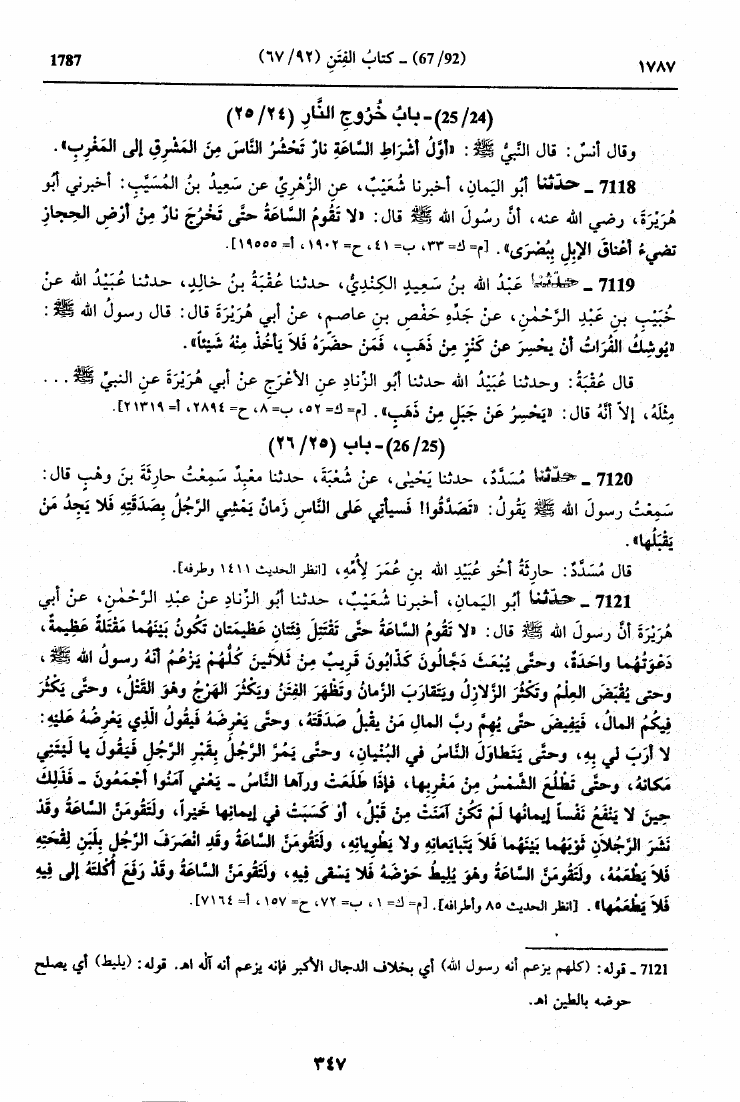 ١٧٨٧ (67/92) ـ كتابُ الفِتَنِ (٦٧/٩٢) 1787
(25/24) ـ بابُ خُرُوجِ النَّارِ (٢٥/٢٤)
وقال أنسٌ: قال النَّبيُّ ﷺ: «أوَّلُ أشْرَاطِ السَّاعَةِ نارٌ تَحْشُرُ النَّاسَ مِنَ المَشْرِقِ إلى المَغْرِبِ».
7118 ـ حدّثنا أبُو اليَمانِ، أخبرنا شُعَيْبٌ، عنِ الزُّهْرِيِّ عن سَعِيدُ بنُ المُسَيَّبِ: أخبرني أبُو
هُرَيْرَةَ، رضي الله عنه، أنَّ رسُولَ الله ﷺ قال: «لا تَقُومُ السَّاعَةُ حتَّى تَخْرُجَ نارٌ مِنْ أرْضِ الحِجازِ
تضيءُ أعْناقَ الإبِلِ بِبُصْرَى». [م= ك= ٣٣، ب= ٤١، ح= ١٩٠٢، أ= ١٩٥٥٥].
7119 ـ حدّثنا عَبْدُ الله بنُ سَعِيدٍ الكِنْدِيُّ، حدثنا عُقْبَةُ بنُ خالِدٍ، حدثنا عُبَيْدُ الله عنْ
خُبَيْبِ بنِ عَبْدِ الرَّحْمٰنِ، عنْ جَدِّهِ حَفْصِ بنِ عاصِمٍ، عنْ أبي هُرَيْرَةَ قال: قال رسولُ الله ﷺ:
«يُوشِكُ الفُرَاتُ أنْ يحْسِرَ عنْ كَنْزٍ مِنْ ذَهَبٍ، فَمَنْ حضَرَهُ فَلا يَأخُذْ مِنْهُ شَيْئاً».
قال عُقْبَةُ: وحدثنا عُبَيْدُ الله حدثنا أبُو الزِّنادِ عنِ الأعْرَجِ عنْ أبي هُرَيْرَةَ عنِ النبيِّ ﷺ ...
مِثْلَهُ، إلاَّ أنَّهُ قال: «يَحْسِرُ عَنْ جَبَلٍ مِنْ ذَهَبٍ». [م= ك= ٥٢، ب= ٨، ح= ٢٨٩٤، أ= ٢١٣١٩].
(26/25) ـ باب (٢٦/٢٥)
7120 ـ حدّثنا مُسَدَّدٌ، حدثنا يَحْيٰى، عنْ شُعْبَةَ، حدثنا معْبَدٌ سَمِعْتُ حارِثَةَ بنَ وهْبٍ قال:
سَمِعْتُ رسولَ الله ﷺ يَقُولُ: «تَصَدَّقُوا! فَسيأتِي على النَّاسِ زَمانٌ يَمْشِي الرَّجُلُ بِصَدَقَتِهِ فَلا يَجِدُ مَنْ
يَقْبَلُها».
قال مُسَدَّدٌ: حارِثَةُ أخُو عُبَيْدِ الله بنِ عُمَرَ لِأُمِّهِ، [انظر الحديث ١٤١١ وطرفه].
7121 ـ حدّثنا أبُو اليَمانِ، أخبرنا شُعَيْبٌ، حدثنا أبُو الزِّنادِ عنْ عبْدِ الرَّحْمٰنِ، عنْ أبي
هُرَيْرَةَ أنَّ رسولَ الله ﷺ قال: «لا تَقُومُ السَّاعَةُ حتَّى تَقْتَتِلَ فِئَتانِ عَظِيمَتانِ تَكُونُ بَيْنَهُما مَقْتَلَةٌ عَظِيمَةٌ،
دَعْوَتُهُما واحَدَةٌ، وحتَّى يُبْعَثَ دَجَّالُونَ كَذَّابُونَ قَرِيبٌ مِنْ ثَلاثِينَ كُلُّهُمْ يَزْعُمُ أنَّهُ رسولُ الله ﷺ،
وحتى يُقْبَضَ العِلْمُ وتَكْثُرَ الزَّلازِلُ ويَتَقارَبَ الزَّمانُ وتَظْهَرَ الفِتَنُ ويَكْثُرَ الهَرْجُ وهوَ القَتْلُ، وحتَّى يَكْثُرَ
فِيكُمُ المالُ، فَيَفِيضَ حتَّى يُهِمَّ ربَّ المالِ مَنْ يقْبلُ صَدَقَتَهُ، وحتَّى يَعْرِضَهُ فَيَقُولُ الَّذِي يَعْرِضُهُ عَليْهِ:
لا أرَبَ لي بِهِ، وحتَّى يَتطاوَلَ النَّاسُ في البُنْيانِ، وحتَّى يَمُرَّ الرَّجُلُ بِقَبْرِ الرَّجُلِ فَيَقُولُ يا لَيْتَنِي
مَكانَهُ، وحتَّى تَطْلُعَ الشَّمْسُ مِنْ مَغْرِبِها، فإذَا طَلَعَتْ ورَآها النَّاسُ ـ يَعْنِي آمَنُوا أجْمَعُونَ ـ فَذٰلِكَ
حِينَ لا يَنْفَعُ نَفْساً إيمانُها لَمْ تكُنْ آمَنَتْ مِنْ قَبْلُ، أوْ كَسَبَتْ في إيمانِها خَيْراً، ولَتَقُومَنَّ السَّاعَةُ وقَدْ
نَشَرَ الرَّجُلانِ ثَوْبَهُما بَيْنَهُما فَلا يَتَبايَعانِهِ ولا يَطْوِيانِهِ، ولَتَقُومَنَّ السَّاعَةُ وقَدِ انْصَرَفَ الرَّجُلُ بِلَبَنِ لِقْحَتِهِ
فَلا يَطْعَمُهُ، ولَتَقُومَنَّ السَّاعَةُ وهوَ يُلِيطُ حَوْضَهُ فَلا يَسْقى فِيهِ، ولَتَقُومَنَّ السَّاعَةُ وقَدْ رَفَعَ أُكْلَتَهُ إلى فِيهِ
فَلا يَطْعَمُها». [انظر الحديث ٨٥ وأطرافه]. [م= ك= ١، ب= ٧٢، ح= ١٥٧، أ= ٧١٦٤].
7121 ـ قوله: (كلهم يزعم أنه رسول الله) أي بخلاف الدجال الأكبر فإنه يزعم أنه آله اهـ. قوله: (يليط) أي يصلح
حوضه بالطين اهـ.
٣٤٧